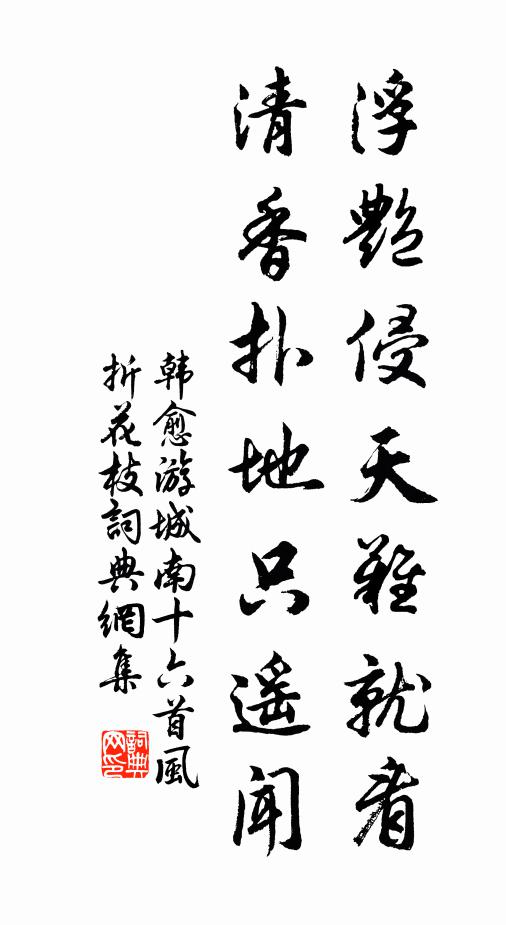 浮艷侵天難就看
清香扑地只遥聞
韩愈游城南十六首風
折花枝詞典網集
詞典
网印